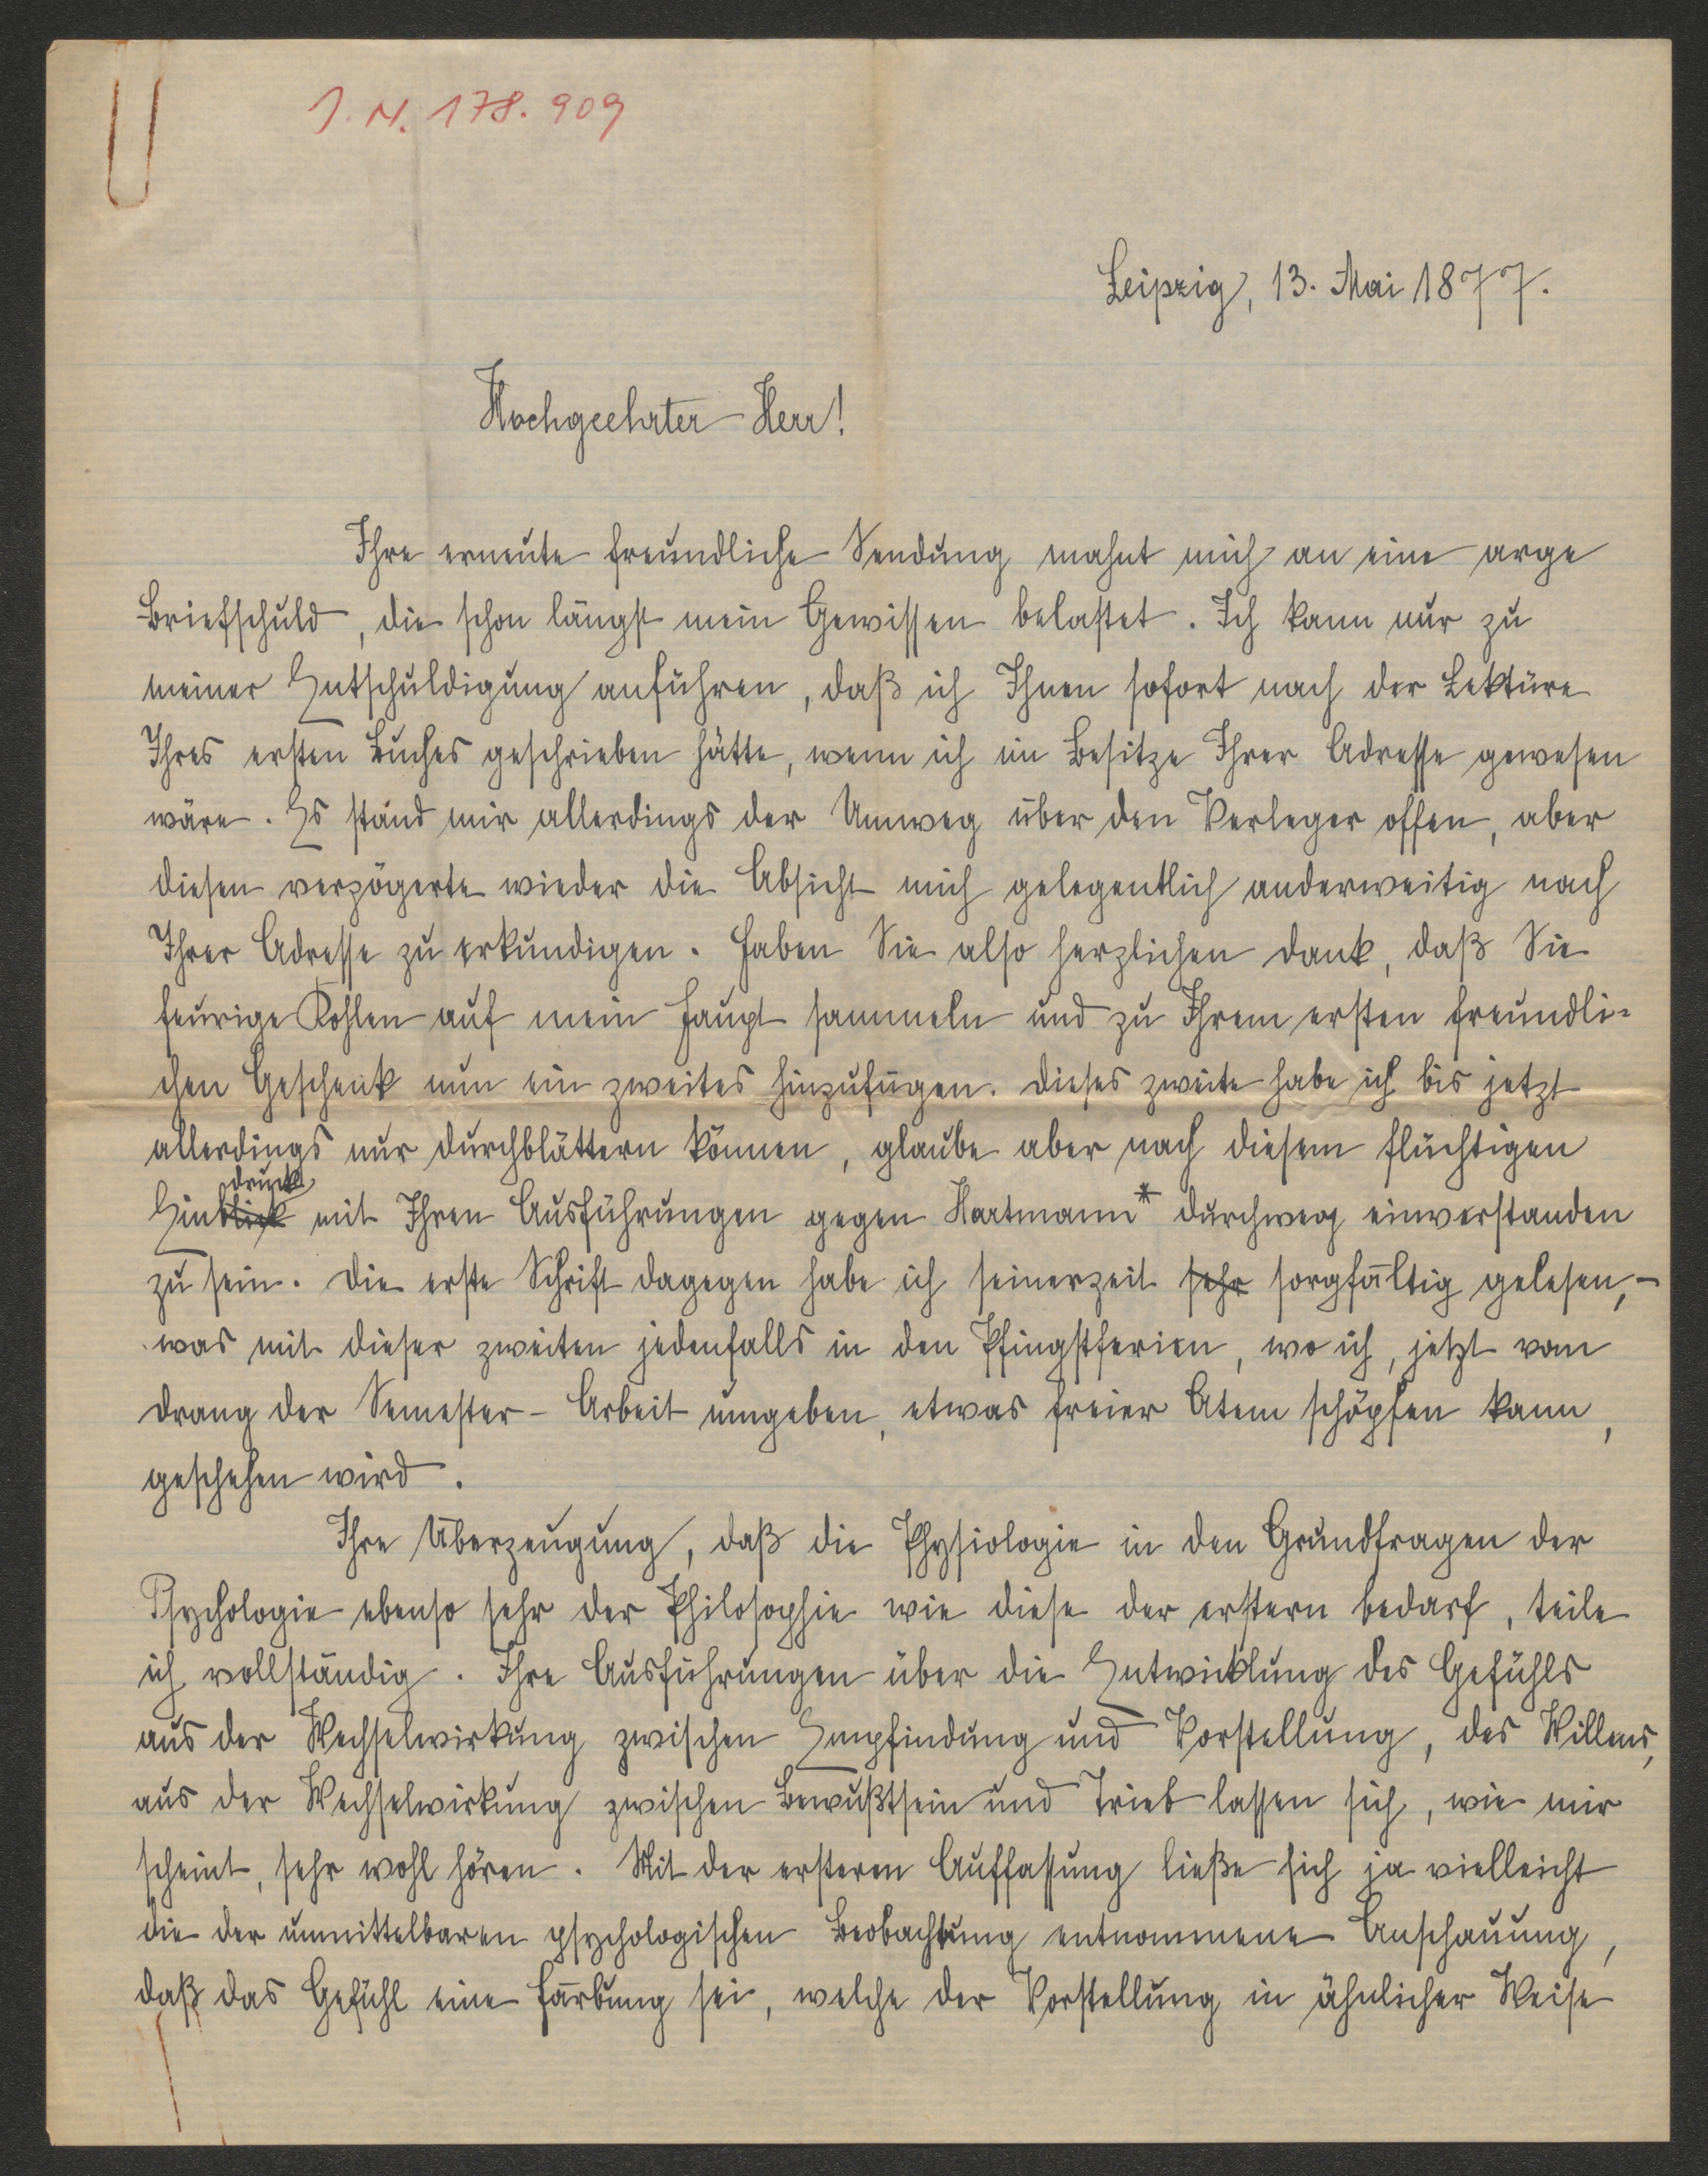 J. N. 178.909
Leipzig, 13. Mai 1877.
Hochgeehrter Herr!
Ihre erneute freundliche Sendung mahnt mich an eine arge
Briefschuld, die schon längst mein Gewissen belastet. Ich kann nur zu
meiner Entschuldigung anführen, daß ich Ihnen sofort nach der Lektüre
Ihres ersten Buches geschrieben hätte, wenn ich im Besitze Ihrer Adresse gewesen
wäre. Es stand mir allerdings der Umweg über den Verleger offen, aber
diesen verzögerte wieder die Absicht mich gelegentlich anderweitig nach
Ihrer Adresse zu erkundigen. Haben Sie also herzlichen Dank, daß Sie
feurige Kohlen auf mein Haupt sammeln und zu Ihrem ersten freundli-
chen Geschenk nun ein zweites hinzufügen. Dieses zweite habe ich bis jetzt
allerdings nur durchblättern können, glaube aber nach diesem flüchtigen
druck
Einblick mit Ihren Ausführungen gegen Hartmann* durchweg einverstanden
zu sein. Die erste Schrift dagegen habe ich seinerzeit sehr sorgfältig gelesen, –
was mit dieser zweiten jedenfalls in den Pfingstferien, wo ich, jetzt vom
Drang der Semester-Arbeit umgeben, etwas freier Atem schöpfen kann,
geschehen wird.
Ihre Überzeugung, daß die Physiologie in den Grundfragen der
Psychologie ebenso sehr der Philosophie wie diese der erstern bedarf, teile
ich vollständig. Ihre Ausführungen über die Entwicklung des Gefühls
aus der Wechselwirkung zwischen Empfindung und Vorstellung, des Willens,
aus der Wechselwirkung zwischen Bewußtsein und Trieb lassen sich, wie mir
scheint, sehr wohl hören. Mit der ersteren Auffassung ließe sich ja vielleicht
die der unmittelbaren psychologischen Beobachtung entnommene Anschauung,
daß das Gefühl eine Färbung sei, welche der Vorstellung in ähnlicher Weise